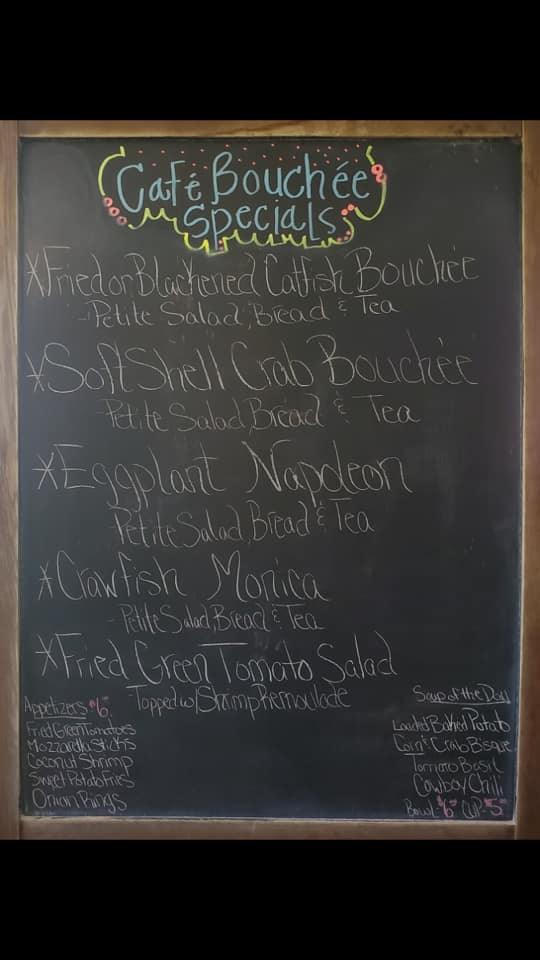 Café Bouchée
Specials
*Fried or Blackened Catfish Bouchée
-Petite Salad, Bread & Tea
*Soft Shell Crab Bouchée
-Petite Salad, Bread & Tea
*Eggplant Napoleon
-Petite Salad, Bread & Tea
*Crawfish Monica
-Petite Salad, Bread & Tea
*Fried Green Tomato Salad
Topped w/ Shrimp Remoulade
Appetizers $6.00
Fried Green Tomatoes
Mozzarella Sticks
Coconut Shrimp
Sweet Potato Fries
Onion Rings
Soup of the Day
Loaded Baked Potato
Corn & Crab Bisque
Tomato Basil
Cowboy Chili
Bowl-$6.00 Cup-$5.00